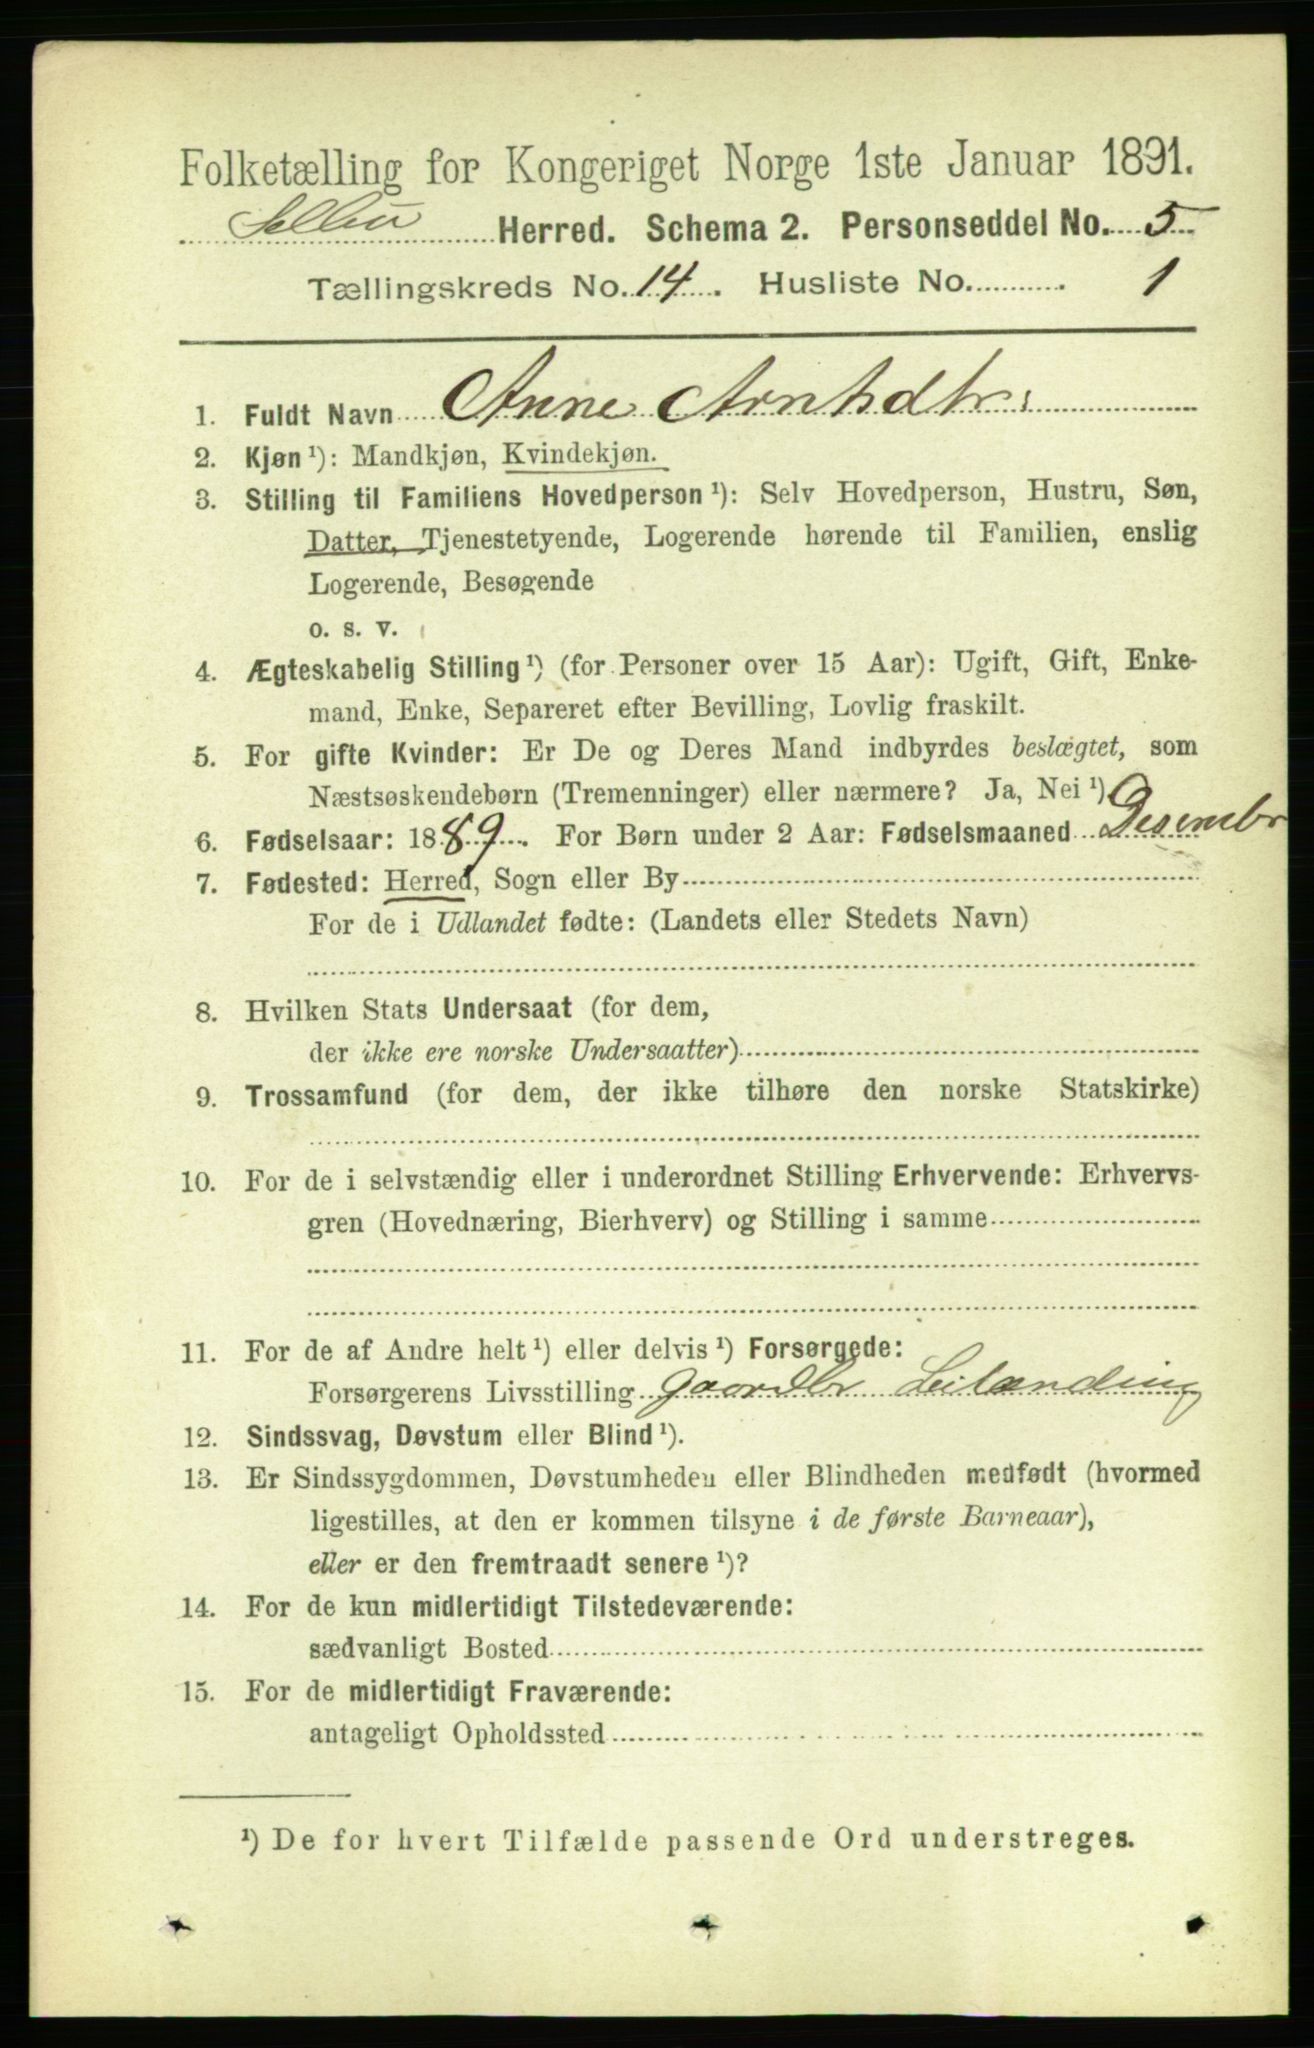 Folketælling for Kongeriget Norge 1ste Januar 1891.
Selbu Herred. Schema 2. Personseddel No. 5
Tællingskreds No. 14. Husliste No. 1
1. Fuldt Navn Anne Arntsdtr:
2. Kjøn¹): Mandkjøn, Kvindekjøn.
3. Stilling til Familiens Hovedperson¹): Selv Hovedperson, Hustru, Søn,
Datter, Tjenestetyende, Logerende hørende til Familien, enslig
Logerende, Besøgende
o. s. v.
4. Ægteskabelig Stilling¹) (for Personer over 15 Aar): Ugift, Gift, Enke-
mand, Enke, Separeret efter Bevilling, Lovlig fraskilt.
5. For gifte Kvinder: Er De og Deres Mand indbyrdes beslægtet, som
Næstsøskendebørn (Tremenninger) eller nærmere? Ja, Nei¹)
6. Fødselsaar: 1889. For Børn under 2 Aar: Fødselsmaaned Desembr
7. Fødested: Herred, Sogn eller By
For de i Udlandet fødte: (Landets eller Stedets Navn)
8. Hvilken Stats Undersaat (for dem,
der ikke ere norske Undersaatter)
9. Trossamfund (for dem, der ikke tilhøre den norske Statskirke)
10. For de i selvstændig eller i underordnet Stilling Erhvervende: Erhvervs-
gren (Hovednæring, Bierhverv) og Stilling i samme
11. For de af Andre helt¹) eller delvis¹) Forsørgede:
Forsørgerens Livsstilling Gaardbr Leilænding
12. Sindssvag, Døvstum eller Blind¹).
13. Er Sindssygdommen, Døvstumheden eller Blindheden medfødt (hvormed
ligestilles, at den er kommen tilsyne i de første Barneaar),
eller er den fremtraadt senere¹)?
14. For de kun midlertidigt Tilstedeværende:
sædvanligt Bosted
15. For de midlertidigt Fraværende:
antageligt Opholdssted
¹) De for hvert Tilfælde passende Ord understreges.